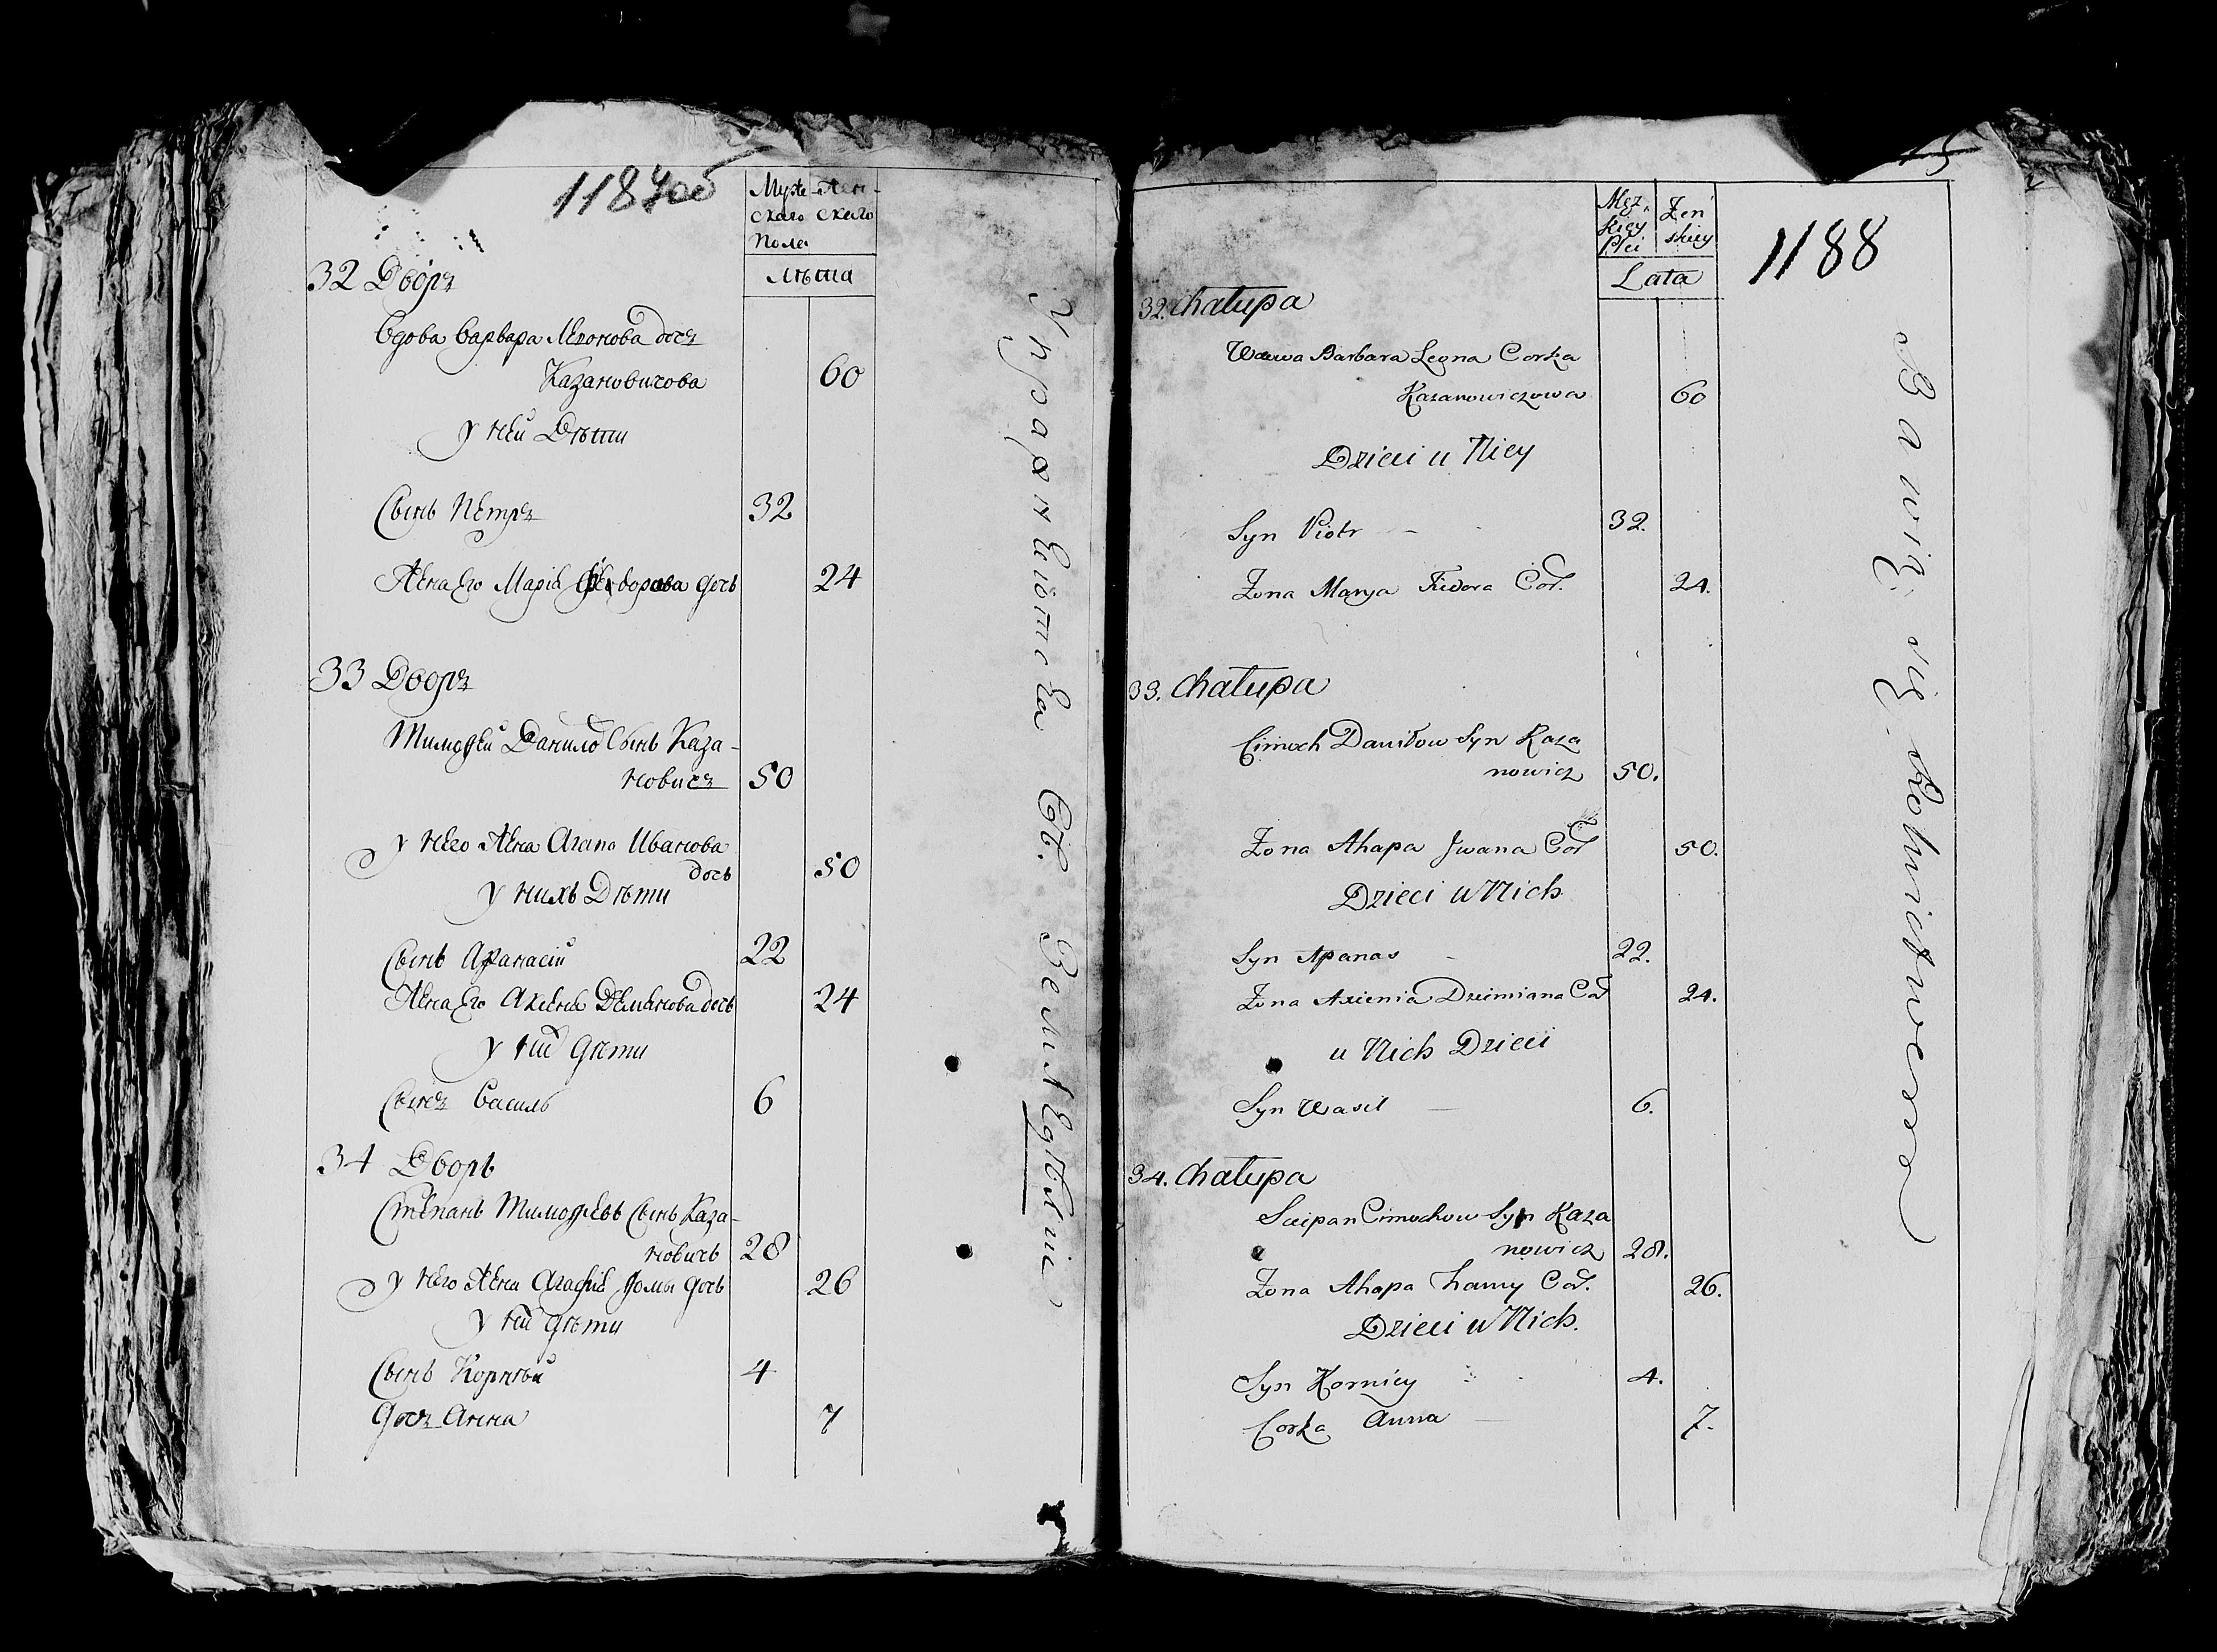 1187об
Муже- Жен-
скаго скаго
пола
Лѣта
32 Дворъ
Вдова Варвара Леонова дочъ
Казановичова 60
у ней Дѣти
Сынъ Петръ 32
Жена Его Марія Федорова дочь 24
33 Дворъ
Тимофей Данилов Сынъ Каза-
новичъ 50
у него Жена Агапа Иванова
дочь 50
у нихъ Дѣти
Сынъ Афанасій 22
Жена Его Аксенія Демянова дочь 24
у ней дѣти
Сынъ Василь 6
34 Дворъ
Степанъ Тимофѣевъ Сынъ Каза-
новичъ 28
у него Жена Агафія Фомы дочь 26
у ней дѣти
Сынъ Корнѣй 4
Дочъ Анна 7
Упражненіе Ев. въ Земледѣліи
15
1188
Męz. Zen
skiey skiey
Płci
Lata
32. Chałupa
Wdowa Barbara Leona Corka
Kazanowiczowa 60
Dzieci u Niey
Syn Piotr - 32.
Zona Marya Fiedora Cor. 24.
33. Chałupa
Cimoch Daniłow Syn Kaza
nowicz 50.
Zona Ahapa Jwana Cor 50.
Dzieci u Nich
Syn Apanas - 22.
Zona Axienia Dziemiana Cor 24.
u Nich Dzieci
Syn Wasil - 6.
34. Chałupa
Sciepan Cimochow Syn Kaza
nowicz 28.
Zona Ahapa Chamy Cor. 26.
Dzieci u Nich.
Syn Korniey 4.
Corka Anna - 7.
Bawią się Rolnictwem